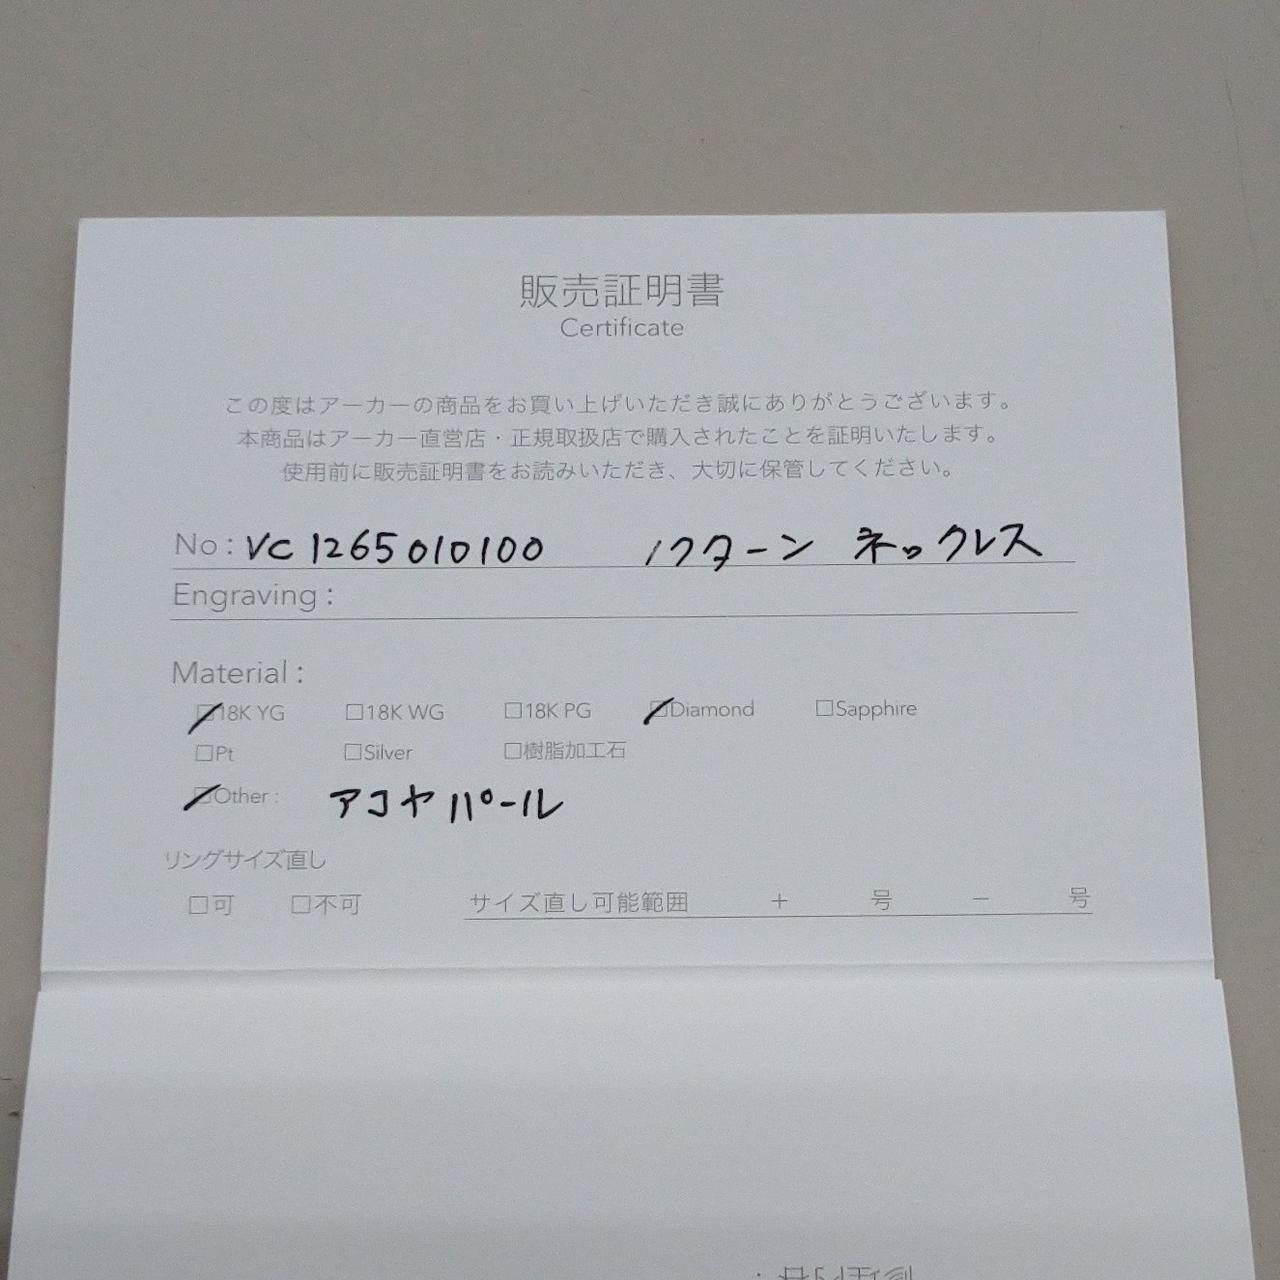 販売証明書
Certificate
この度はアーカーの商品をお買い上げいただき誠にありがとうございます。
本商品はアーカー直営店・正規取扱店で購入されたことを証明いたします。
使用前に販売証明書をお読みいただき、大切に保管してください。
No : VC1265010100 ノクターン ネックレス
Engraving :
Material :
☑18K YG □18K WG □18K PG ☑Diamond □Sapphire
□Pt □Silver □樹脂加工石
☑Other : アコヤパール
リングサイズ直し
□可 □不可 サイズ直し可能範囲 + 号 − 号